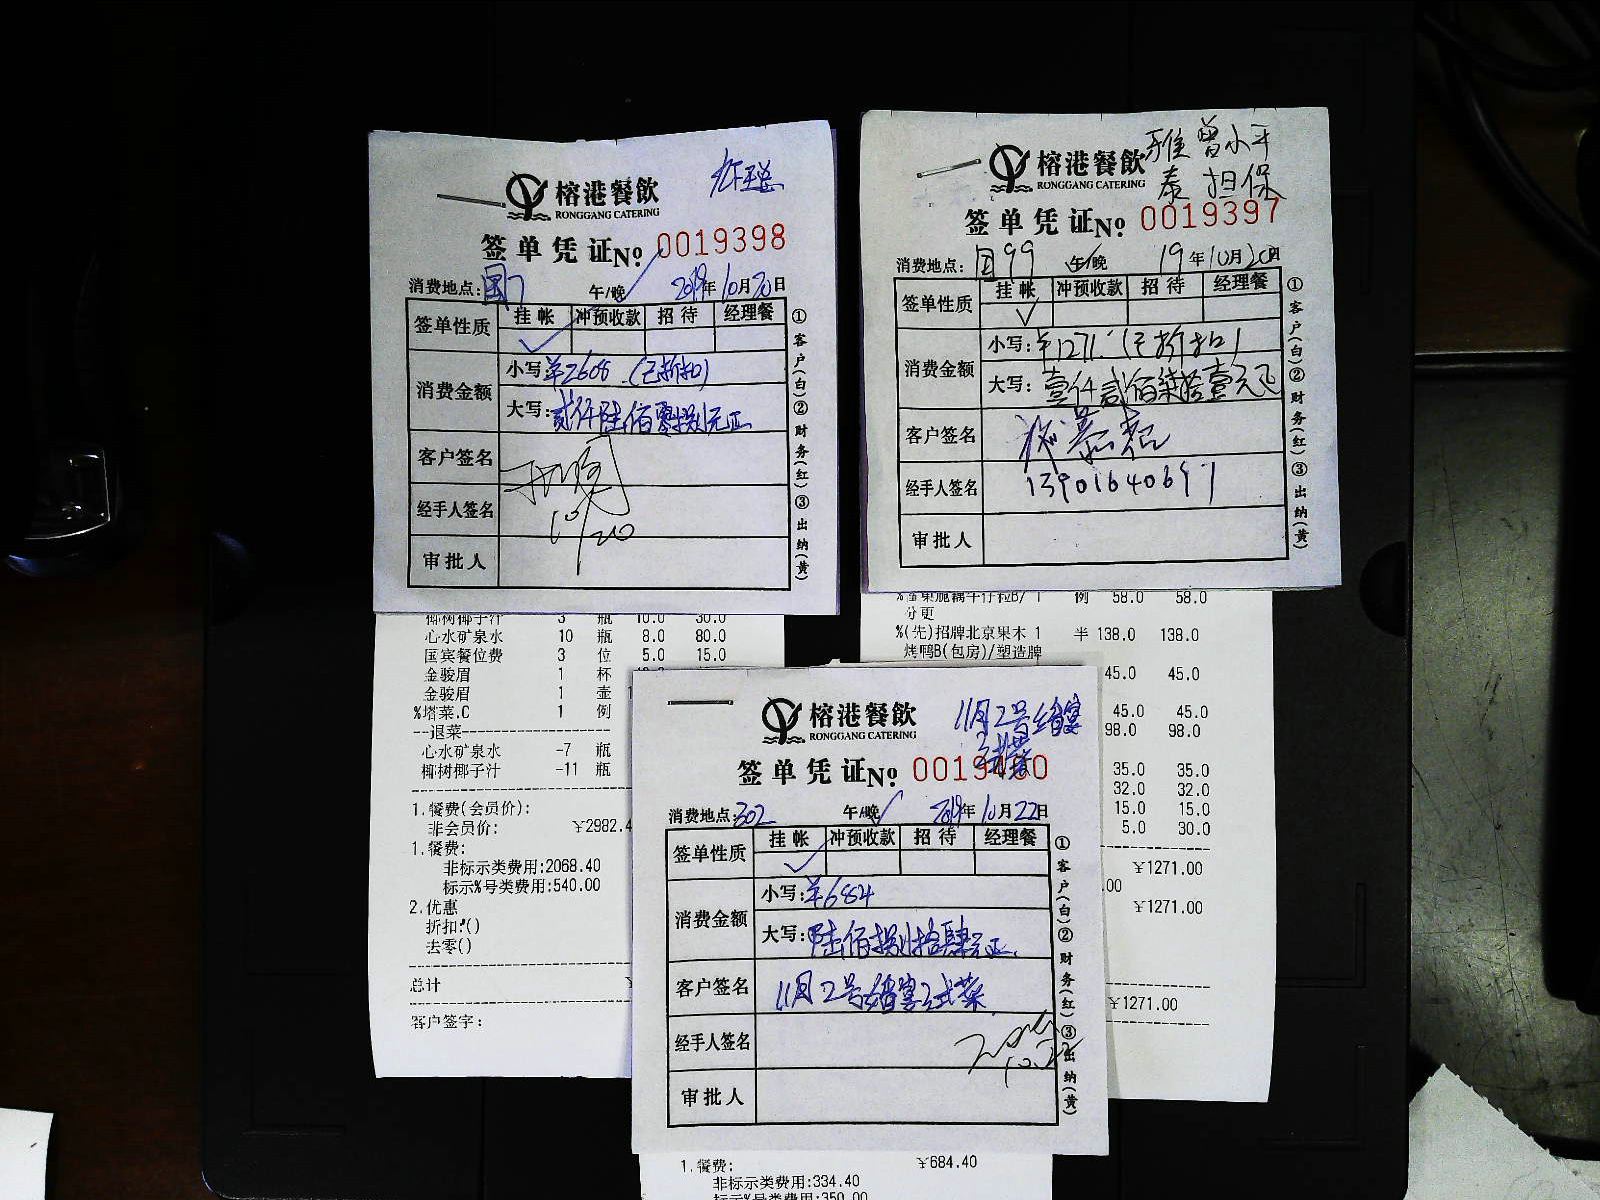 榕港餐飲
RONGGANG CATERING
签单凭证№ 0019398
消费地点: 国7 午/晚 2019年10月20日
签单性质 挂帐 冲预收款 招待 经理餐
消费金额
小写:¥2608.(已折扣)
大写:贰仟陆佰零捌元正
客户签名
经手人签名
10/20
审批人
①客户(白)②财务(红)③出纳(黄)
椰树椰子汁 3 瓶 10.0 30.0
心水矿泉水 10 瓶 8.0 80.0
国宾餐位费 3 位 5.0 15.0
金骏眉 1 杯
金骏眉 1 壶
%塔菜.C 1 例
--退菜--
心水矿泉水 -7 瓶
椰树椰子汁 -11 瓶
1.餐费(会员价):
非会员价: ¥2982.4
1.餐费:
非标示类费用:2068.40
标示%号类费用:540.00
2.优惠
折扣:()
去零()
总计
客户签字:
雅 曾小平
泰 担保
榕港餐飲
RONGGANG CATERING
签单凭证№ 0019397
消费地点: 国99 午/晚 19年10月20日
签单性质 挂帐 冲预收款 招待 经理餐
消费金额
小写:¥1271.(已折扣)
大写:壹仟贰佰柒拾壹元正
客户签名
经手人签名 13901640697
审批人
①客户(白)②财务(红)③出纳(黄)
分更
例 58.0 58.0
%(先)招牌北京果木 1 半 138.0 138.0
烤鸭B(包房)/塑造牌
45.0 45.0
45.0 45.0
98.0 98.0
35.0 35.0
32.0 32.0
15.0 15.0
5.0 30.0
¥1271.00
.00
¥1271.00
¥1271.00
11月2号结婚宴
试菜
榕港餐飲
RONGGANG CATERING
签单凭证№
消费地点:302 午/晚 2019年10月22日
签单性质 挂帐 冲预收款 招待 经理餐
消费金额
小写:¥684
大写:陆佰捌拾肆元正
客户签名 11月2号结婚宴试菜
经手人签名
10.22
审批人
①客户(白)②财务(红)③出纳(黄)
1.餐费: ¥684.40
非标示类费用:334.40
标示%号类费用:350.00